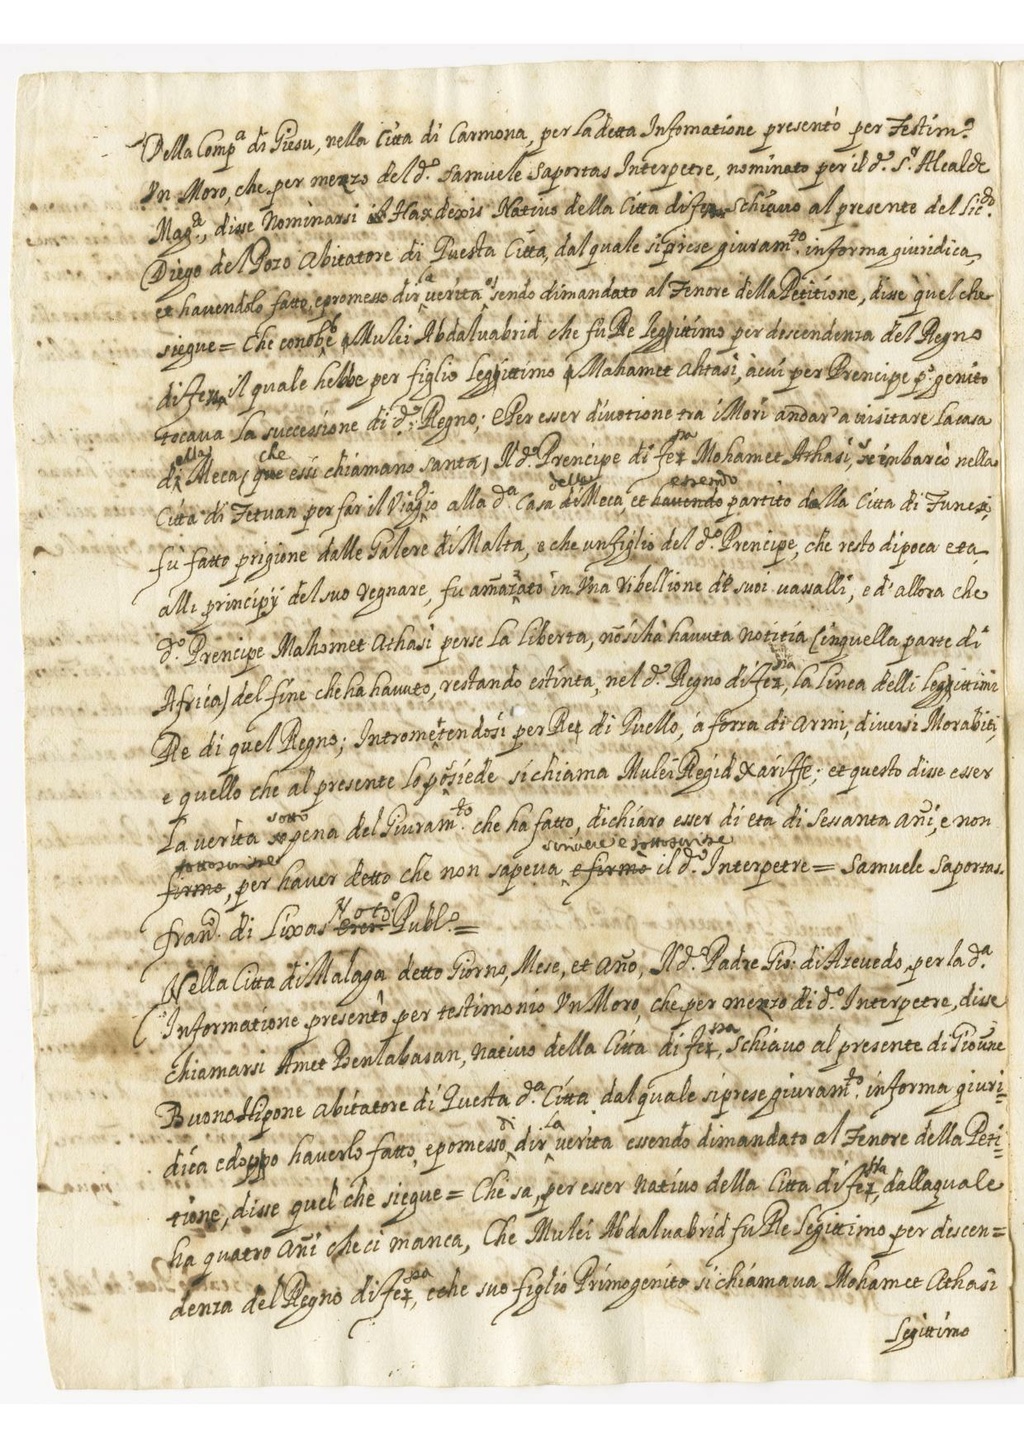 Della Comp.a di Giesu, nella Citta di Carmona, per La detta Infomatione presentò per Testim.o
Vn Moro, che per menzo del d.o Samuele Saportas Interpetre, nominato per il d.o S.r Alcalde
Mag.e, disse Nominarsi Haxdexis Nativo della Citta di fez Schiauo al presente del Lic.do
Diego del Pozo Abitatore di Questa Citta, dal quale si prese giuram.to in forma giuridica,
et havendolo fatto, e promesso dir la verita esendo dimandato al Tenore della Petitione, disse quel che
siegue = Che conobbe Mulei Abdaluabrid che fu Re legittimo per descendenza del Regno
di fezza il quale hebbe per figlio legittimo Mahamet Ahtasi, à cui per Prencipe p.o genito
tocaua La successione di d.o Regno; e Per esser diuotione tra i Mori andar a visitare La casa
della Meca, (che essi chiamano santa) Il d.o Prencipe di fezza Mohamet Athasi, se imbarcò nella
Citta di Tetuan per far il Viagio alla d.a Casa della Meca, et havendo essendo partito della Citta di Tunesi,
fù fatto prigione dalle Galere di Malta, e che un figlio del d.o Prencipe, che resto di poca eta
alli principij del suo regnare, fu amazzato in Vna ribellione de suoi uassalli, e d'allora che
d.o Prencipe Mahomet Athasi perse La liberta, nõ si hà hauuta notitia (in quella parte di
Africa) del fine che ha hauuto, restando estinta, nel d.o Regno di fezzia, la linea delli legittimi
Re di quel Regno; Intromettendosi per Re di Quello, à forza di armi, diuersi Morabiti,
e quello che al presente lo possiede si chiama Mulei Regid Xariffe; et questo disse esser
La verita sotto pena del Giuram.to che ha fatto, dichiaro esser di età di Sessanta Añi, e non
firmo sottoscrisse, per hauer detto che non sapeua scriuere e sottoscrisse e firmò il d.o Interpetre = Samuele Saportas.
Fran.co di Lixas Noto. Publ.o =
Nella Citta di Malaga detto Giorno, Mese, et Año, Il d.o Padre Gio: di Azevedo, per la d.a
Informatione presentò per testimonio Vn Moro, che per menzo di d.o Interpetre, disse
chiamarsi Amet Benlabasan, nativo della Citta di fezza, Schiauo al presente di Giouñe
Buono Hipone abitatore di Questa d.a Citta dal quale si prese giuram.to in forma giuri=
dica e doppo hauerlo fatto, e pomesso di dir La verita essendo dimandato al Tenore della Peti=
tione, disse quel che siegue = Che sa, per esser nativo della Citta di fezza, dalla quale
ha quatro Añi che ci manca, Che Mulei Abdaluabrid fu Re Legittimo per descen=
denza del Regno di fezza, e che suo figlio Primogenito si chiamaua Mohamet Athasi
Legittimo